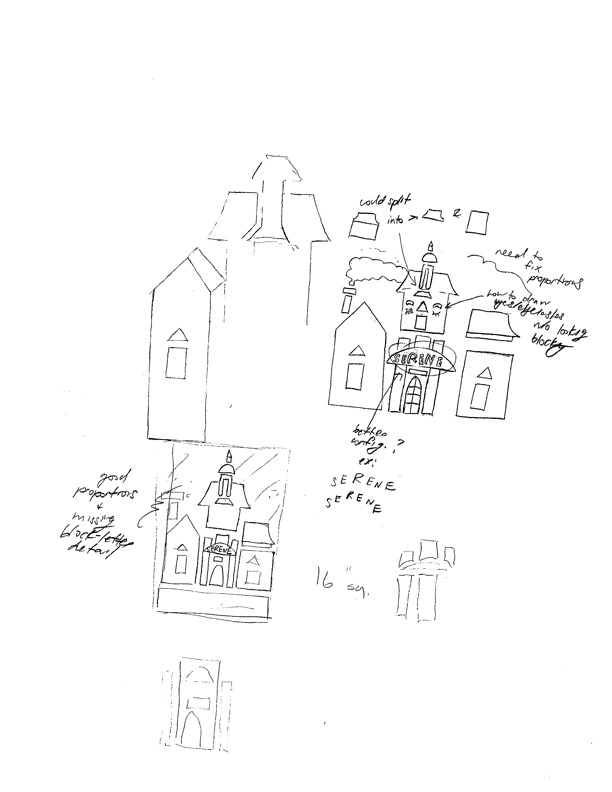 could split
into > &
need to
fix
proportions
how to draw
eyes/eyelashes
w/o looking
blocky
SERENE
better
config.?
ex:
SERENE
SERENE
good
proportions
+
missing
block-letter
detail
SERENE
16" sq.